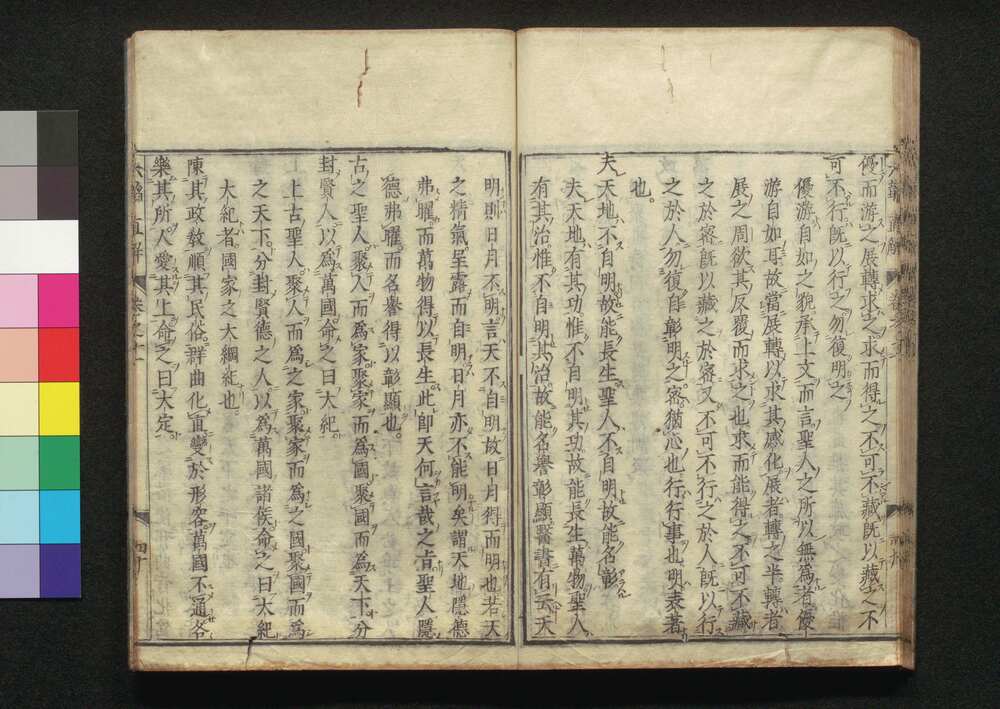 優而游之展轉求之求而得之不可不藏既以藏之不
可不行既以行之勿復明之
優游自如之貌承上文而言聖人之所以無為者優
游自如耳故當展轉以求其感化展者轉之半轉者
展之周欲其反覆而求之也求而能得之不可不藏
之於密既以藏之於密又不可不行之於人既以行
之於人勿復自彰明之密猶心也行行事也明表著
也
夫天地不自明故能長生聖人不自明故能名彰
夫天地有其功惟不自明其功故能長生萬物聖人
有其治惟不自明其治故能名譽彰顯醫書有云天
明則日月不明言天不自明故日月得而明也若天
之精氣呈露而自明日月亦不能明矣謂天地隱德
弗曜而萬物得以長生此即天何言哉之旨聖人隱
德弗曜而名譽得以彰顯也
古之聖人聚人而為家聚家而為國聚國而為天下分
封賢人以為萬國命之曰大紀
上古聖人聚人而為之家聚家而為之國聚國而為
之天下分封賢德之人以為萬國諸侯命之曰大紀
大紀者國家之大綱紀也
陳其政敎順其民俗群曲化直變於形容萬國不通各
樂其所人愛其上命之曰大定
六韜直解 卷之十一 四十